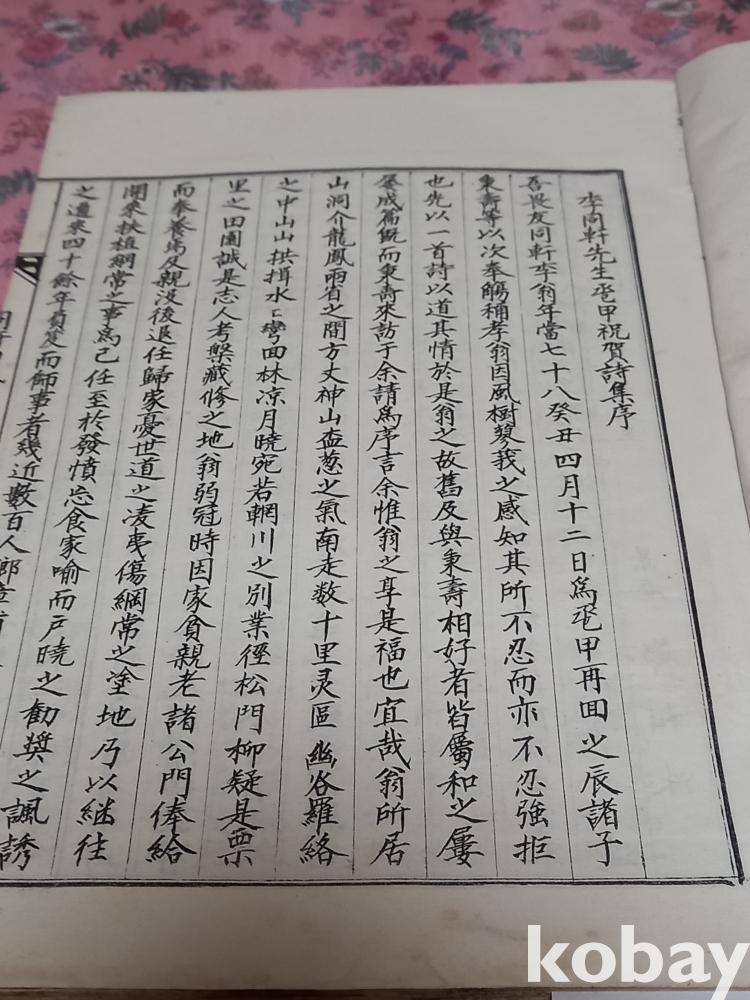 李同軒先生耋甲祝賀詩集序
吾畏友同軒李翁年當七十八癸丑四月十二日爲耋甲再回之辰諸子
秉壽等以次奉觴稱孝翁因風樹蓼莪之感知其所不忍而亦不忍強拒
也先以一首詩以道其情於是翁之故舊及與秉壽相好者皆屬和之屢
屢成篇旣而秉壽來訪于余請爲序言余惟翁之享是福也宜哉翁所居
山洞介龍鳳兩省之間方丈神山盃葱之氣南走数十里灵區幽谷羅絡
之中山山拱揖水〻彎回林凉月曉宛若輞川之別業徑松門柳疑是栗
里之田園誠是志人考槃藏修之地翁弱冠時因家貧親老諸公門俸給
而奉養焉及親沒後退任歸家憂世道之凌夷傷綱常之塗地乃以継往
開來扶植綱常之事爲己任至於發憤忘食家喻而戶曉之勸奬之諷誘
之邇來四十餘年負笈而師事者幾近數百人鄉
kobay